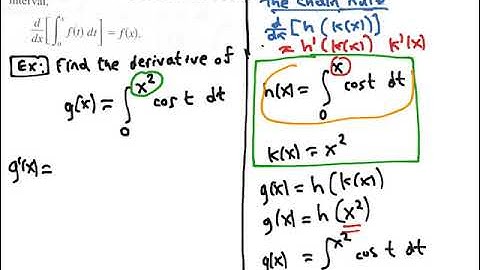 interval,
d/dx [∫ₐˣ f(t) dt] = f(x).
Ex: Find the derivative of
g(x) = ∫₀^x² cos t dt
g'(x) =
The Chain Rule
d/dx [h(k(x))]
= h'(k(x)) k'(x)
h(x) = ∫₀ˣ cos t dt
k(x) = x²
g(x) = h(k(x))
g(x) = h(x²)
g(x) = ∫^x² cos t dt